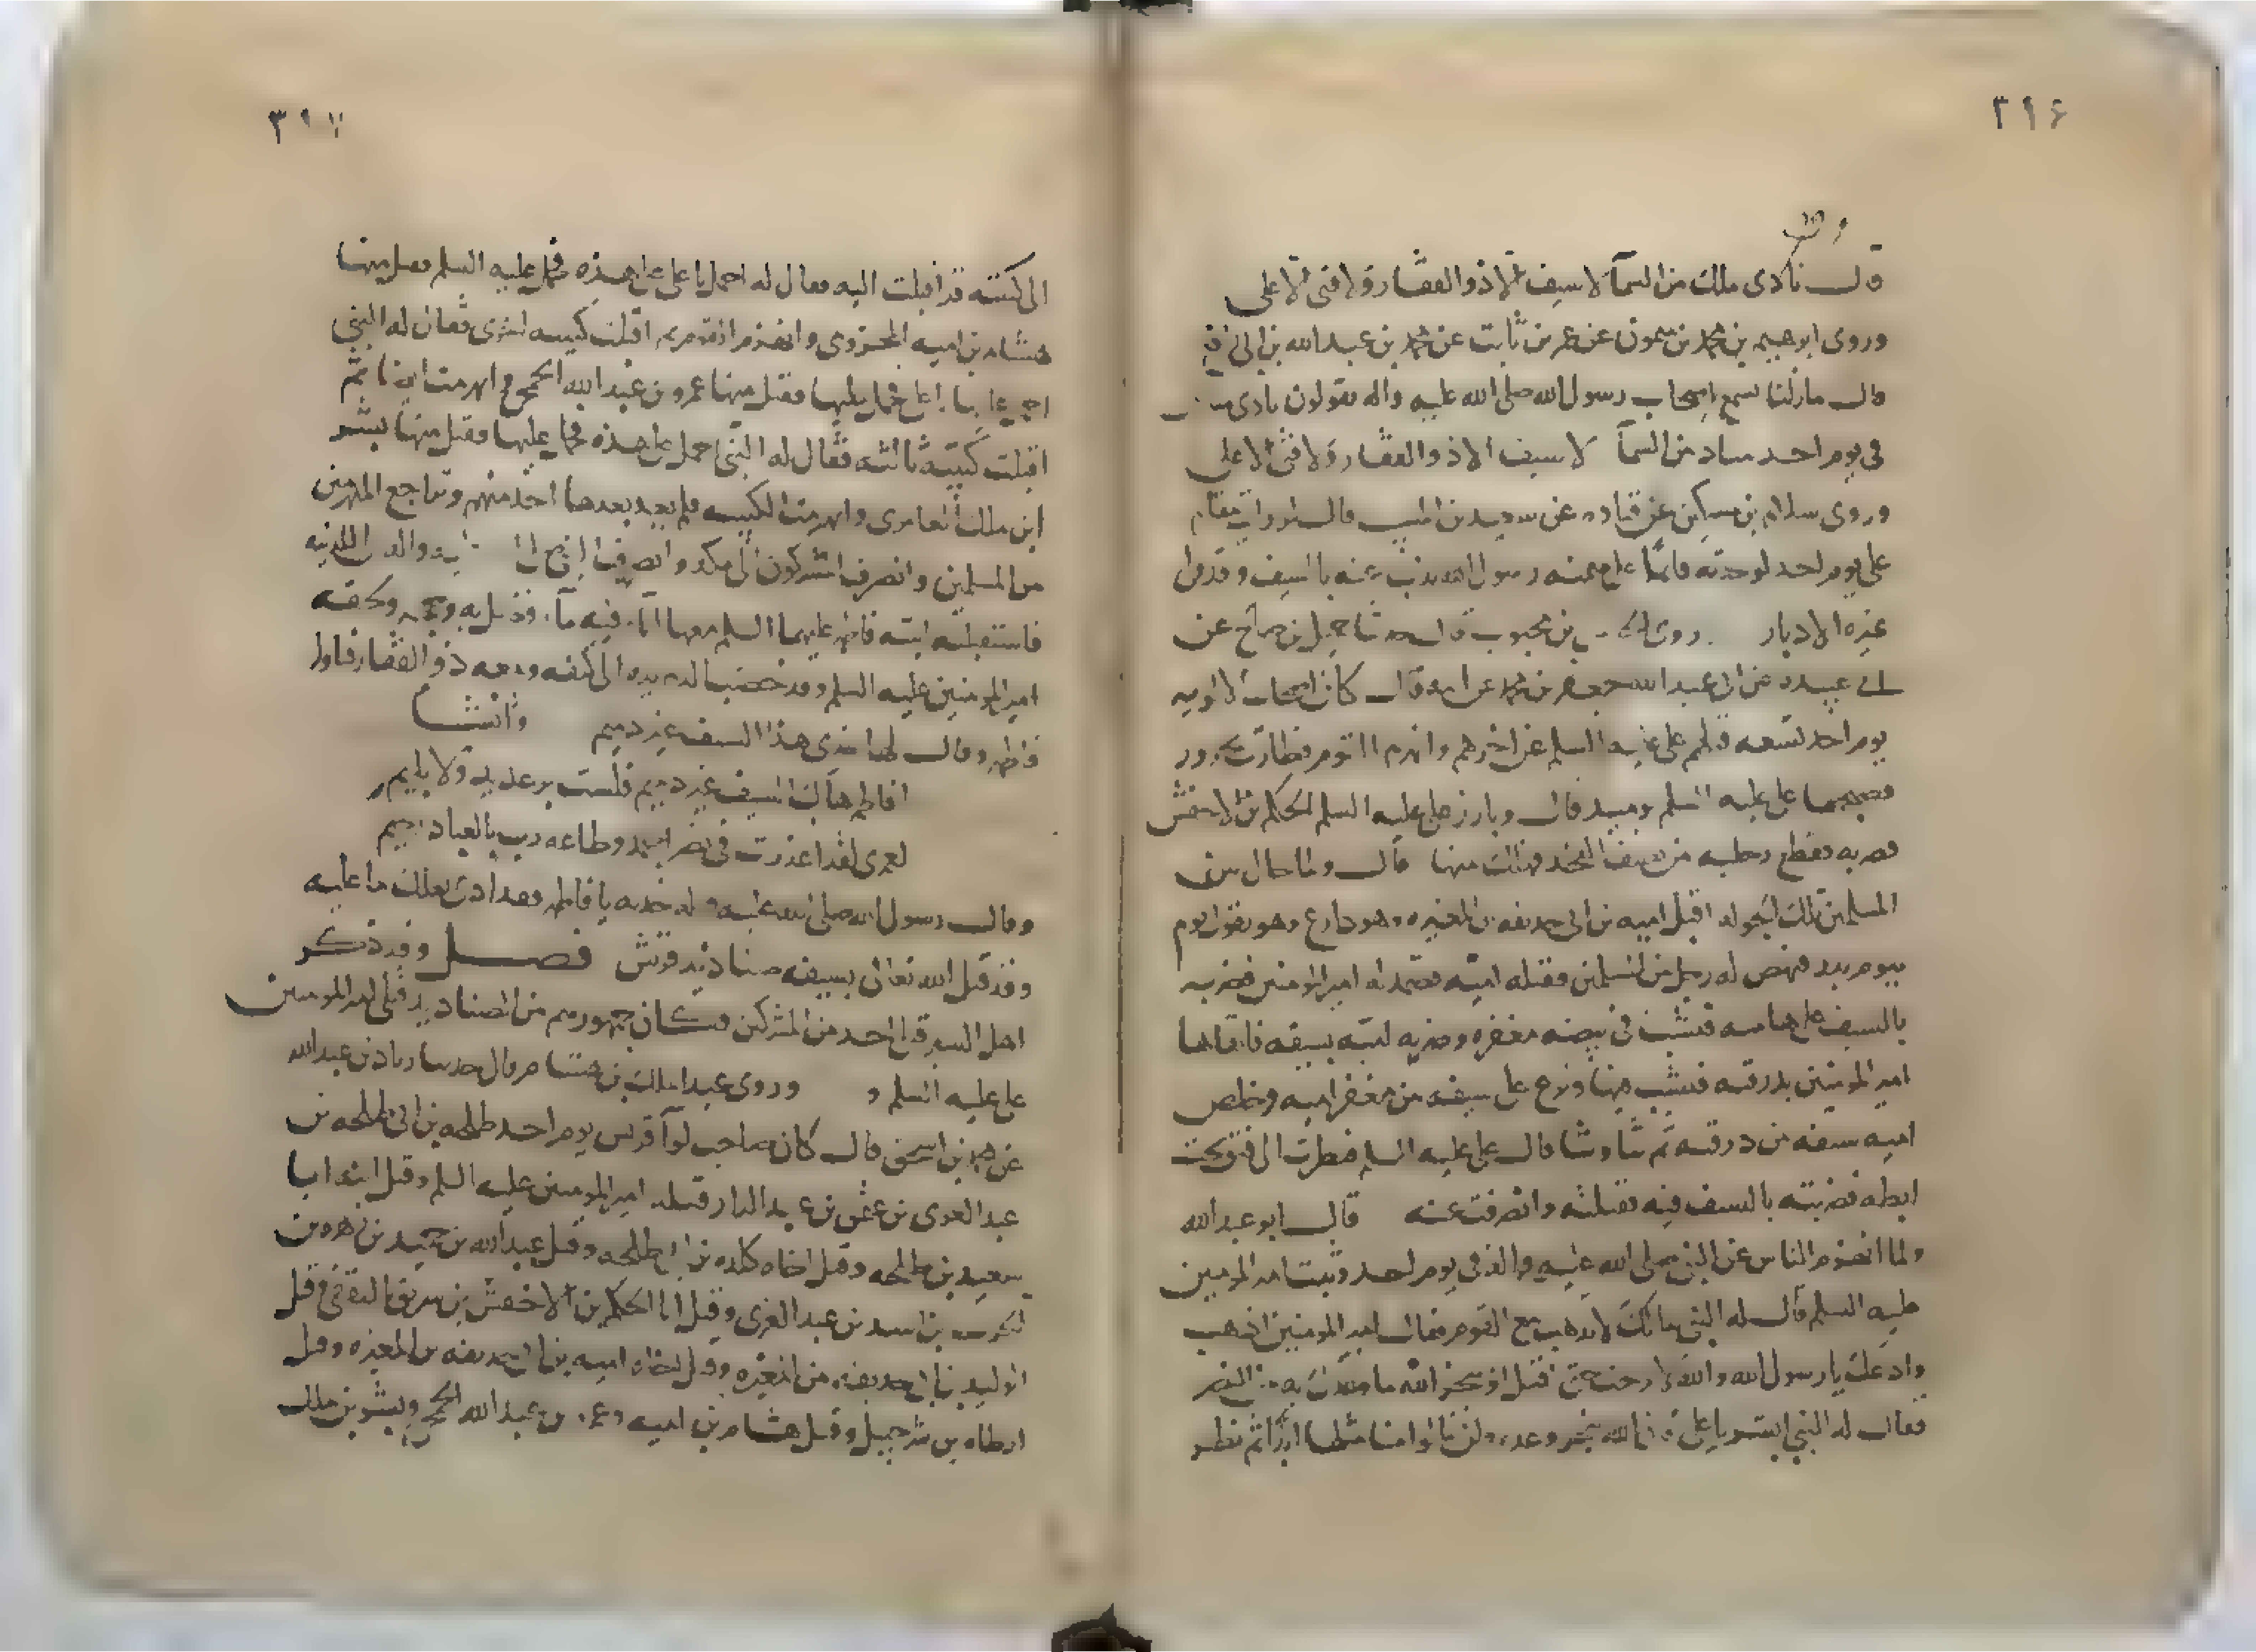 ٣١٦
قال نادى ملك من السمآ لا سيف الا ذو الفقار ولا فتى الا على
وروى ابرهيم بن محمد بن ميمون عن عمر بن ثابت عن محمد بن عبيد الله بن ابى رافع
قال مازلنا نسمع اصحاب رسول الله صلى الله عليه واله يقولون نادى
فى يوم احد مناد من السمآ لا سيف الا ذو الفقار ولا فتى الا على
وروى سلام بن مسكين عن قتاده عن سعيد بن المسيب قال لو رايت مقام
على يوم احد لوجدته قائما على ميمنه رسول الله يذب عنه بالسيف وقد ولى
غيره الادبار روى الحسن بن محبوب قال حدثنا جميل بن صالح عن
ابى عبيده عن ابى عبد الله جعفر بن محمد عن ابيه قال كان اصحاب الالويه
يوم احد تسعه قتلهم على عليه السلم عن اخرهم وانهزم القوم فطارت مخزوم
فضحها على عليه السلم يوميد قال وبارز على عليه السلم الحكم بن الاخفش
فضربه فقطع رجليه من نصف الفخذ فهلك منها قال ولما جال
المسلمين تلك الجوله اقبل اميه بن ابى حذيفه بن المغيره وهو دارع وهو يقول يوم
بيوم بدر فعرض له رجل من المسلمين فقتله اميه فصمد له امير المومنين فضربه
بالسيف على هامته فنشب فى بيضه مغفره وضربه اميه بسيفه فاتقاها
امير المومنين بدرقته فنشب فيها ونزع على سيفه من مغفر اميه وخلص
اميه سيفه من درقته ثم تناوشا قال على عليه السلم فنظرت الى فتق تحت
ابطه فضربته بالسيف فيه فقتلته وانصرفت عنه قال ابو عبد الله
ولما انهزم الناس عن النبى صلى الله عليه واله فى يوم احد وثبت امير المومنين
عليه السلم قال له النبى مالك لا تذهب مع القوم فقال امير المومنين اذهب
وادعك يا رسول الله والله لا برحت حتى اقتل او ينجز الله ما وعدك به من النصر
فقال له النبى ابشر يا على فان الله منجز وعده ولن ينالوا منا مثلها ابدا ثم نظر
٣١٧
الى كتيبه قد اقبلت اليه فقال له احمل يا على على هذه فحمل عليه السلم فقتل منها
هشام بن اميه المخزومى وانهزم القوم ثم اقبلت كتيبه اخرى فقال له النبى
احمل على هذه فحمل عليها فقتل منها عمرو بن عبد الله الجمحى وانهزمت ايضا ثم
اقبلت كتيبه ثالثه فقال له النبى احمل على هذه فحمل عليها فقتل منها بشر
ابن ملك العامرى وانهزمت الكتيبه فلم يعد بعدها احد منهم وتراجع المنهزمين
من المسلمين وانصرف المشركون الى مكه وانصرف النبى الى المدينه
فاستقبلته ابنته فاطمه عليهما السلم معها انآ فيه مآ فغسل به وجهه ولحقه
امير المومنين عليه السلم وقد خضب الدم يده الى كتفه ومعه ذو الفقار فناوله
فاطمه وقال لها خذى هذا السيف غير ذميم وانشا
افاطم هاك السيف غير ذميم فلست برعديد ولا بلئيم
لعمرى لقد اعذرت فى نصر احمد وطاعه رب بالعباد رحيم
وقال رسول الله صلى الله عليه واله خذيه يا فاطمه فقد ادى بعلك ما عليه
وقد قتل الله تعالى بسيفه صناديد قريش فصل وقد ذكر
اهل السير قتلى احد من المشركين فكان جمهورهم من الصناديد قتلى امير المومنين
على عليه السلم و وروى عبد الملك بن هشام قال حدثنا زياد بن عبد الله
عن محمد بن اسحق قال كان صاحب لوآ قريش يوم احد طلحه بن ابى طلحه بن
عبد العزى بن عثمن بن عبد الدار قتله امير المومنين عليه السلم وقتل ابنه ابا
سعيد بن طلحه وقتل اخاه كلده بن ابى طلحه وقتل عبد الله بن حميد بن زهره بن
الحرث بن اسد بن عبد العزى وقتل ابا الحكم بن الاخفش بن شريق الثقفى وقتل
الوليد بن ابى حذيفه بن المغيره وقتل اخاه اميه بن ابى حذيفه بن المغيره وقتل
ارطاه بن شرحبيل وقتل هشام بن اميه وعمرو بن عبد الله الجمحى وبشر بن ملك